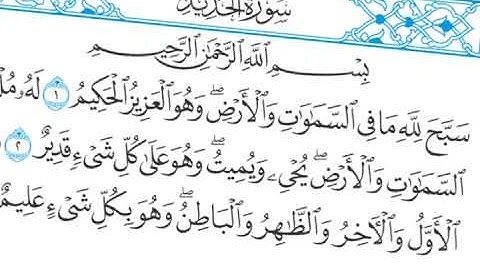 سُورَةُ الْحَدِيدِ
بِسْمِ اللَّهِ الرَّحْمَٰنِ الرَّحِيمِ
سَبَّحَ لِلَّهِ مَا فِي السَّمَٰوَٰتِ وَالْأَرْضِ ۖ وَهُوَ الْعَزِيزُ الْحَكِيمُ ١ لَهُۥ
السَّمَٰوَٰتِ وَالْأَرْضِ ۖ يُحْيِۦ وَيُمِيتُ ۖ وَهُوَ عَلَىٰ كُلِّ شَىْءٍ قَدِيرٌ ٢
الْأَوَّلُ وَالْءَاخِرُ وَالظَّٰهِرُ وَالْبَاطِنُ ۖ وَهُوَ بِكُلِّ شَىْءٍ عَلِيمٌ